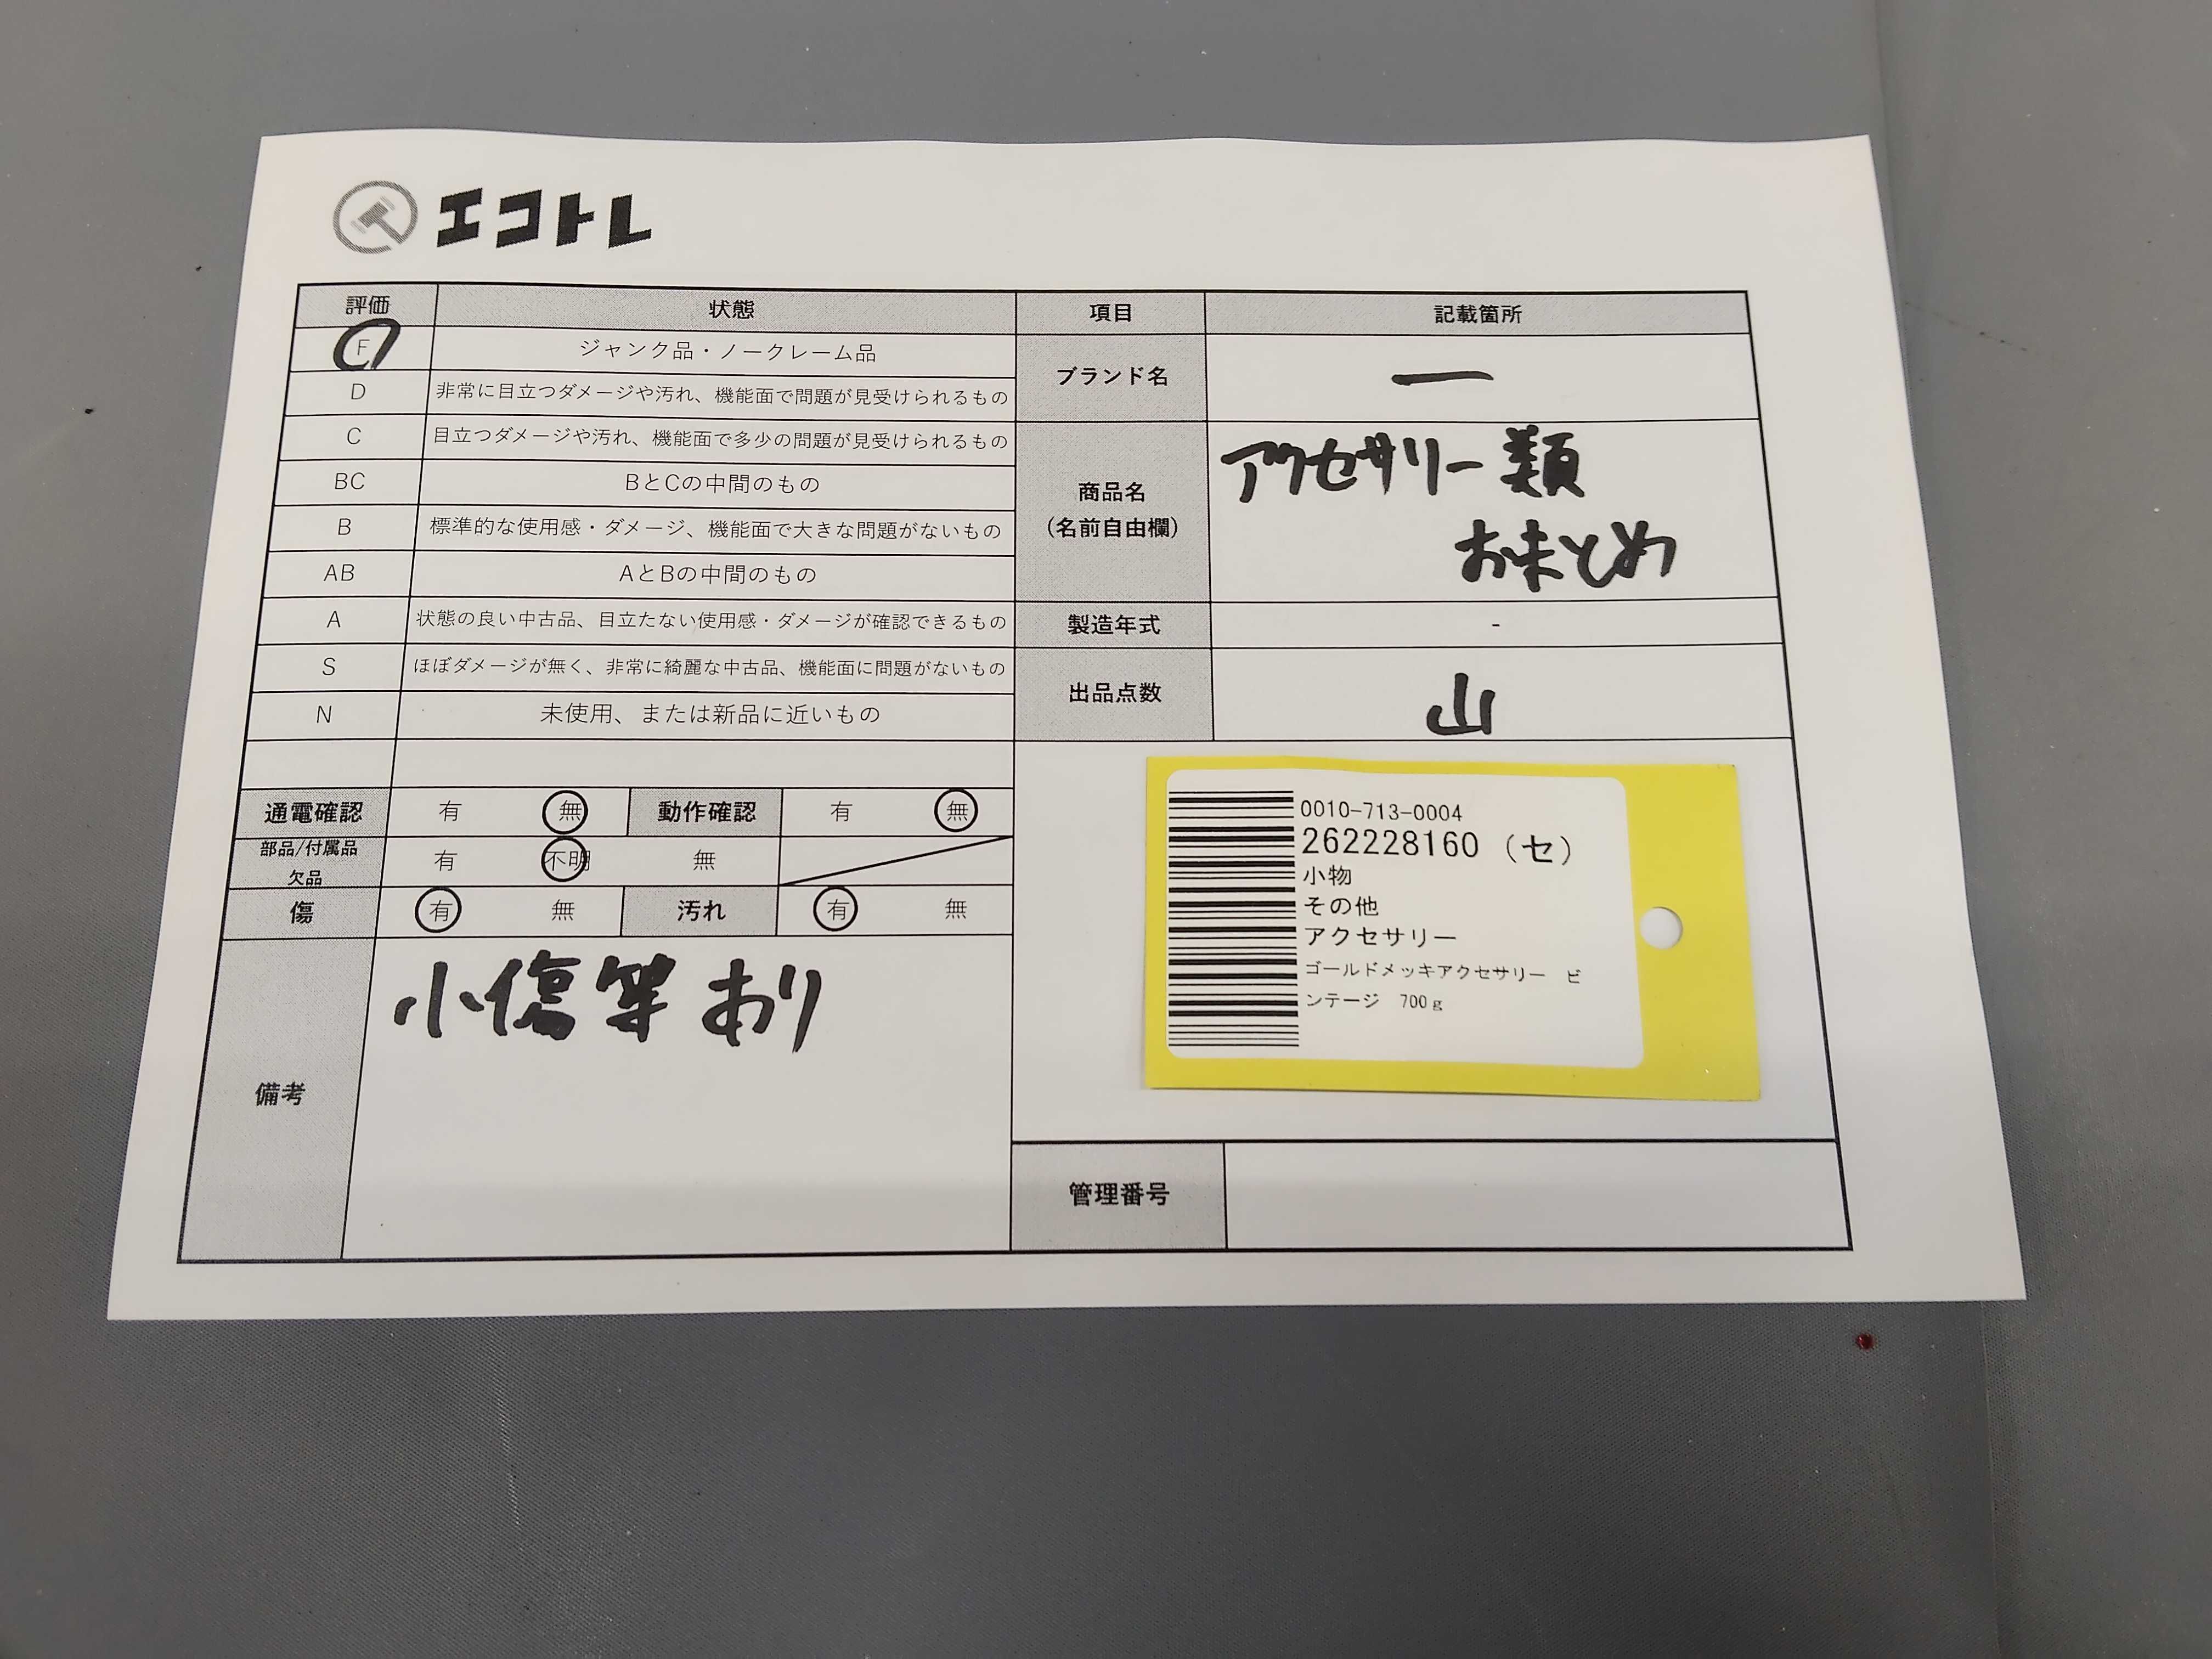 エコトレ
評価 状態 項目 記載箇所
F ジャンク品・ノークレーム品
D 非常に目立つダメージや汚れ、機能面で問題が見受けられるもの
ブランド名 ー
C 目立つダメージや汚れ、機能面で多少の問題が見受けられるもの
BC BとCの中間のもの
B 標準的な使用感・ダメージ、機能面で大きな問題がないもの
AB AとBの中間のもの
商品名
(名前自由欄)
アクセサリー類
おまとめ
A 状態の良い中古品、目立たない使用感・ダメージが確認できるもの
製造年式 -
S ほぼダメージが無く、非常に綺麗な中古品、機能面に問題がないもの
N 未使用、または新品に近いもの
出品点数 山
通電確認 有 無 動作確認 有 無
部品/付属品
欠品
有 不明 無
傷 有 無 汚れ 有 無
備考
小傷等あり
0010-713-0004
262228160 (セ)
小物
その他
アクセサリー
ゴールドメッキアクセサリー ビ
ンテージ 700g
管理番号